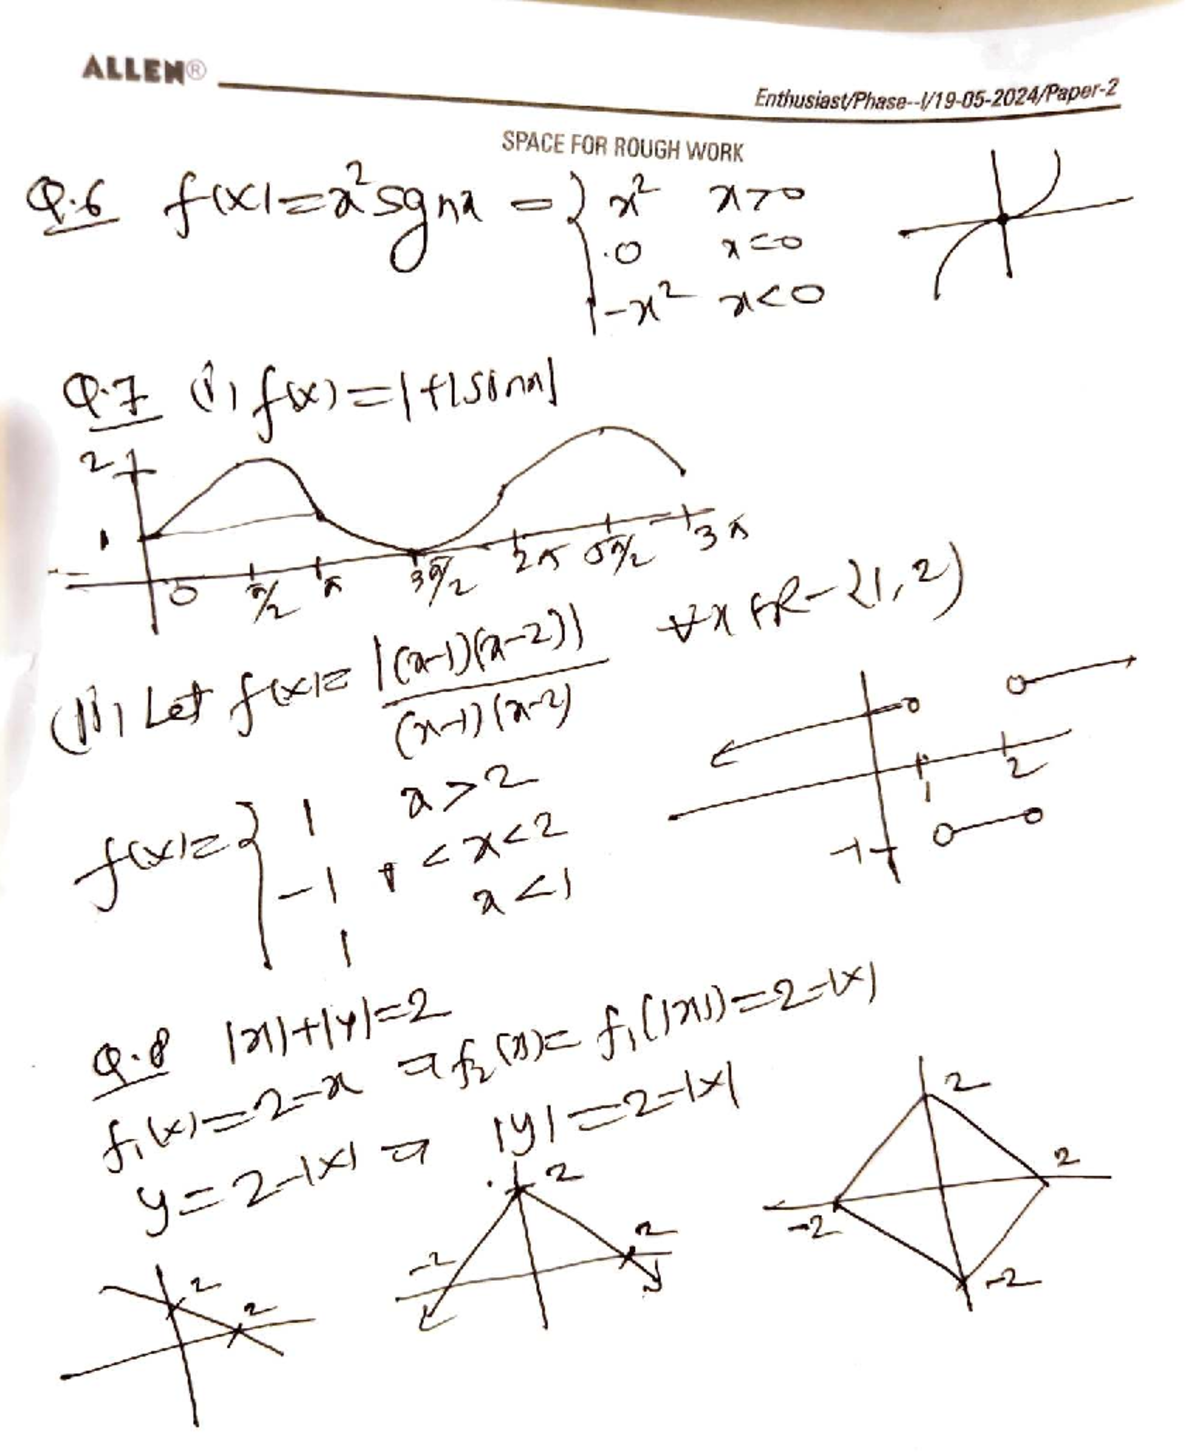 ALLEN®
Enthusiast/Phase--I/19-05-2024/Paper-2
SPACE FOR ROUGH WORK
Q.6 f(x)=x² sgn x = { x² x>0
0 x=0
-x² x<0
Q.7 (i) f(x)=1+|sinx|
2
1
0 π/2 π 3π/2 2π 5π/2 3π
(ii) Let f(x)= |(x-1)(x-2)| ∀x∈R-{1,2}
(x-1)(x-2)
1 2
-1
f(x)={ 1 x>2
-1 1<x<2
1 x<1
Q.8 |x|+|y|=2
f₁(x)=2-x ⇒ f₂(x)= f₁(|x|)=2-|x|
y=2-|x| ⇒ |y|=2-|x|
2 2
2 -2 2
2 2 -2 -2